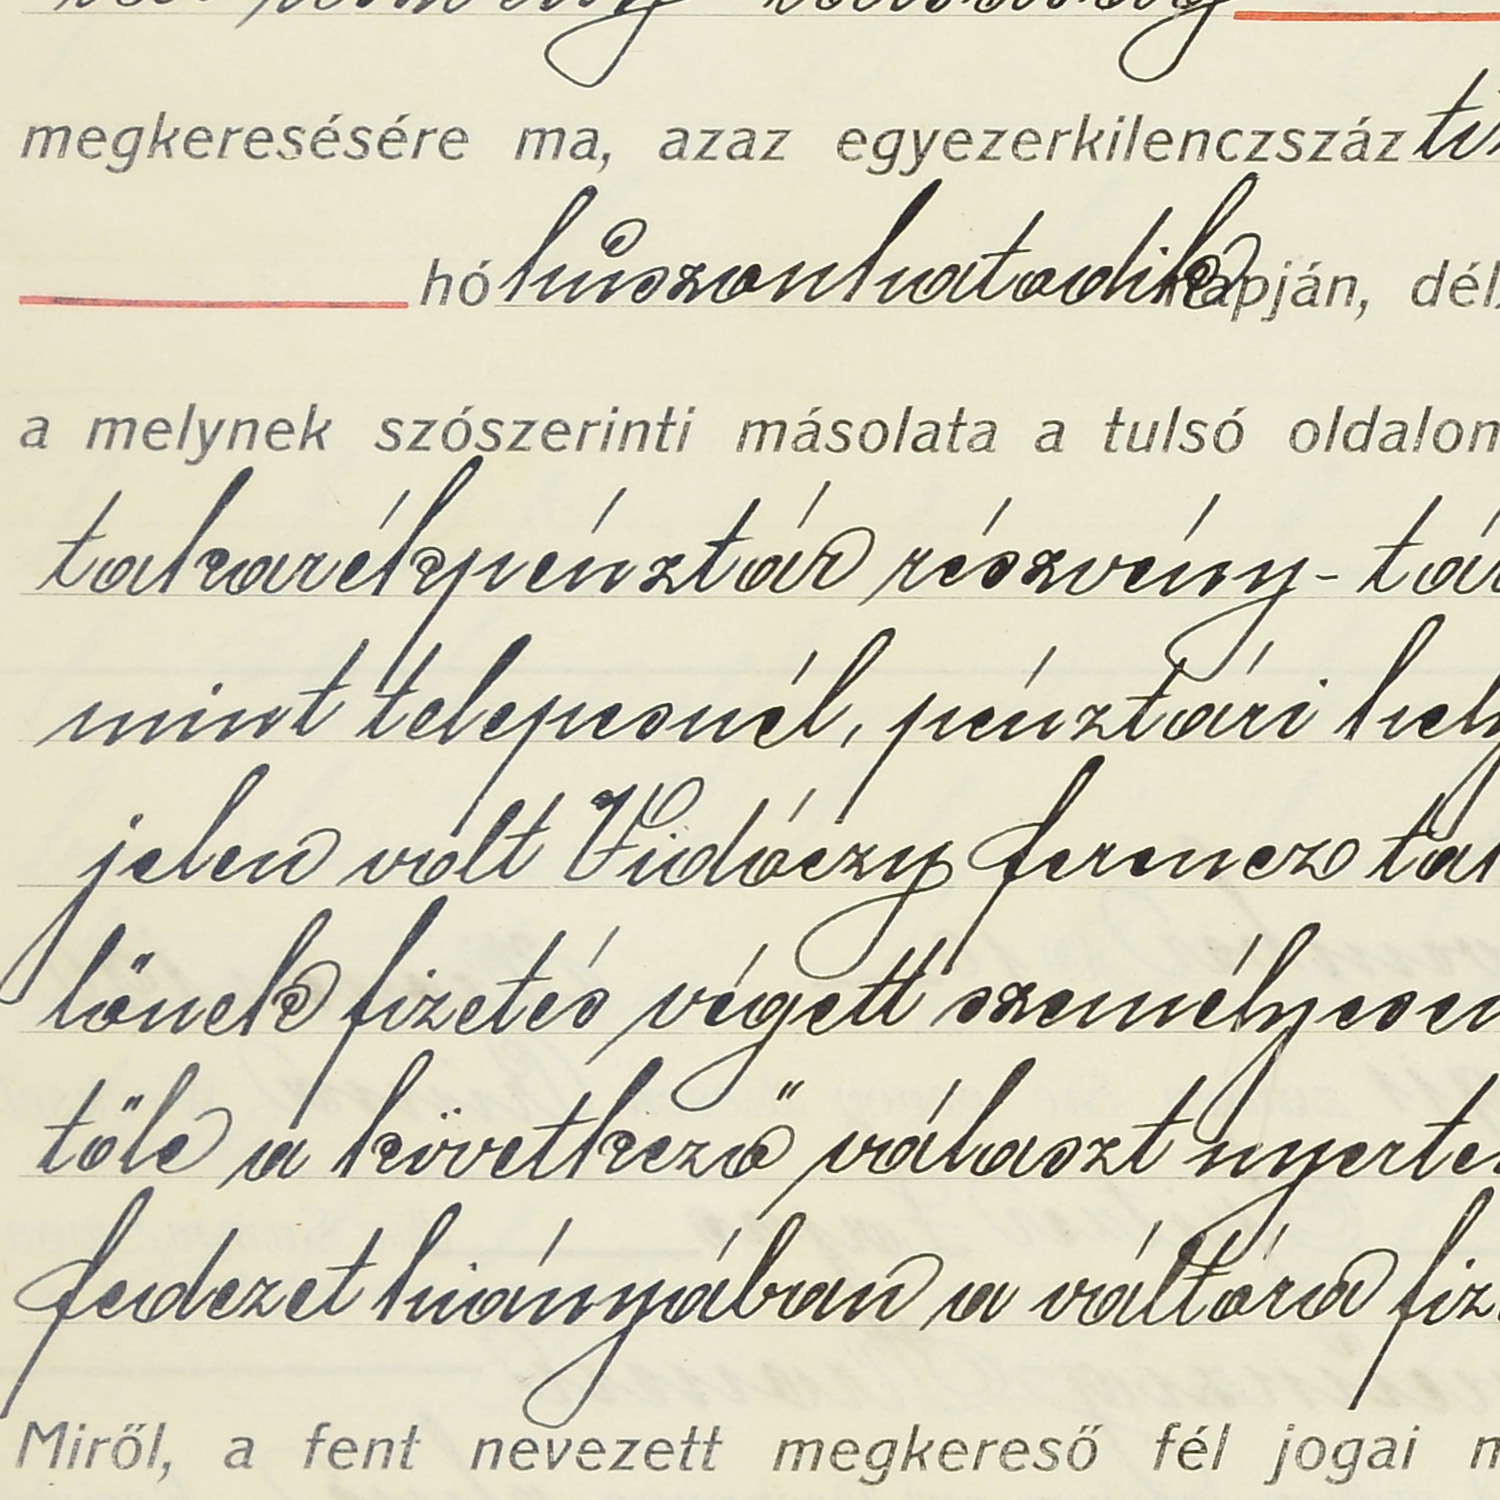 megkeresésére ma, azaz egyezerkilenczszáz
hó huszonhatodik napján,
a melynek szószerinti másolata a tulsó oldalon
takarékpénztár részvény-tár
mint telepesnél, pénztári hely
jelen volt Vidóczy ferencz
lönek fizetés végett személyesen
töle a következő választ nyerte
fedezet hiányában a váltóra fiz
Miről, a fent nevezett megkereső fél jogai